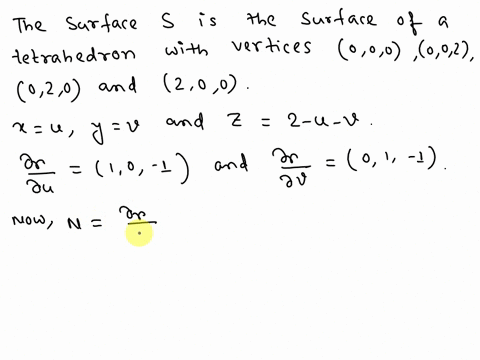 The surface S is the surface of a
tetrahedron with vertices (0,0,0), (0,0,2),
(0,2,0) and (2,0,0).
x = u, y = v and z = 2-u-v.
∂r/∂u = (1, 0, -1) and ∂r/∂v = (0, 1, -1).
Now, N = ∂r/